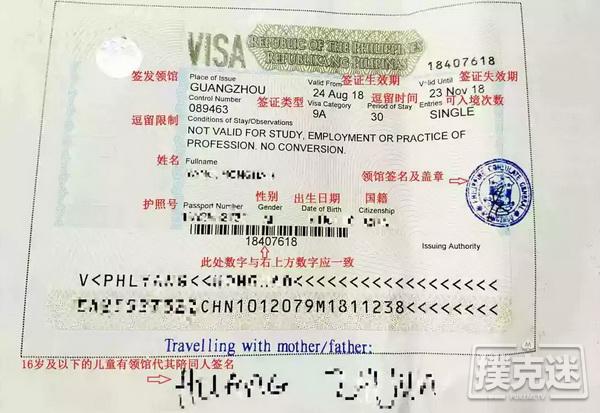 VISA REPUBLIC OF THE PHILIPPINES
REPUBLIKANG PILIPINAS
18407618
签发领馆 Place of Issue 签证生效期 Valid From 签证失效期 Valid Until
GUANGZHOU 24 Aug 18 23 Nov 18
Control Number 签证类型 Visa Category 逗留时间 Period of Stay 可入境次数 Entries
089463 9A 30 SINGLE
逗留限制 Conditions of Stay/Observations
NOT VALID FOR STUDY, EMPLOYMENT OR PRACTICE OF
PROFESSION. NO CONVERSION.
姓名 Fullname
领馆签名及盖章
护照号 Passport Number 性别 Gender 出生日期 Date of Birth 国籍 Citizenship
18407618
Issuing Authority
此处数字与右上方数字应一致
V<PHL
CHN1012079M1811238<<<<<<<
Travelling with mother/father:
16岁及以下的儿童有领馆代其陪同人签名
HUANG
扑克迷